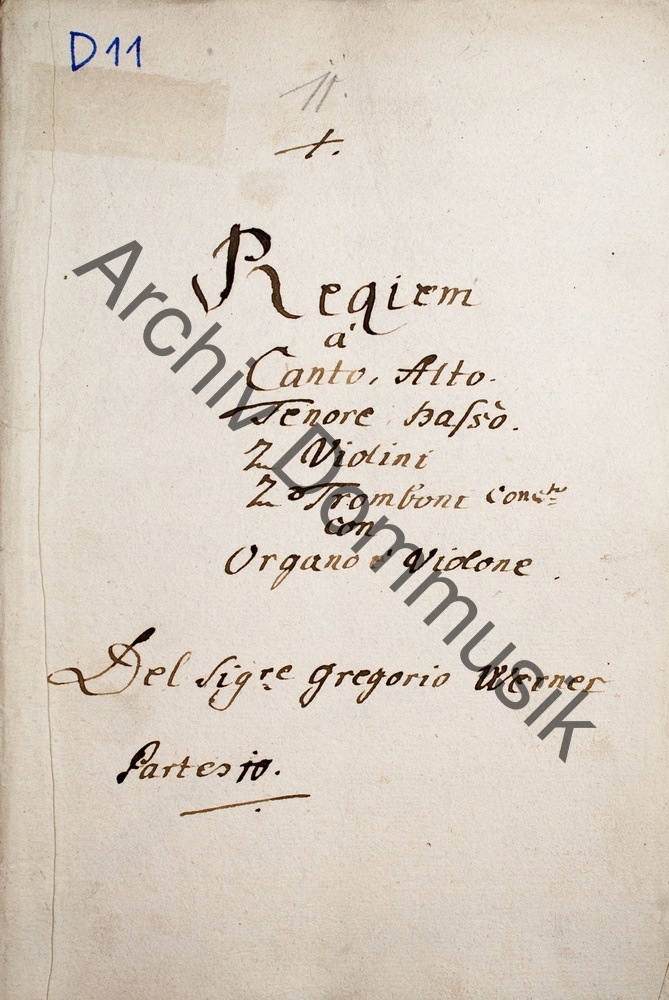 D11
11.
+.
Reqiem
a
Canto, Alto.
Tenore Basso.
2 Violini
2 Tromboni Conc:te
con
Organo e Violone.
Del Sigre Gregorio Werner
Partes 10.
Archiv Dommusik